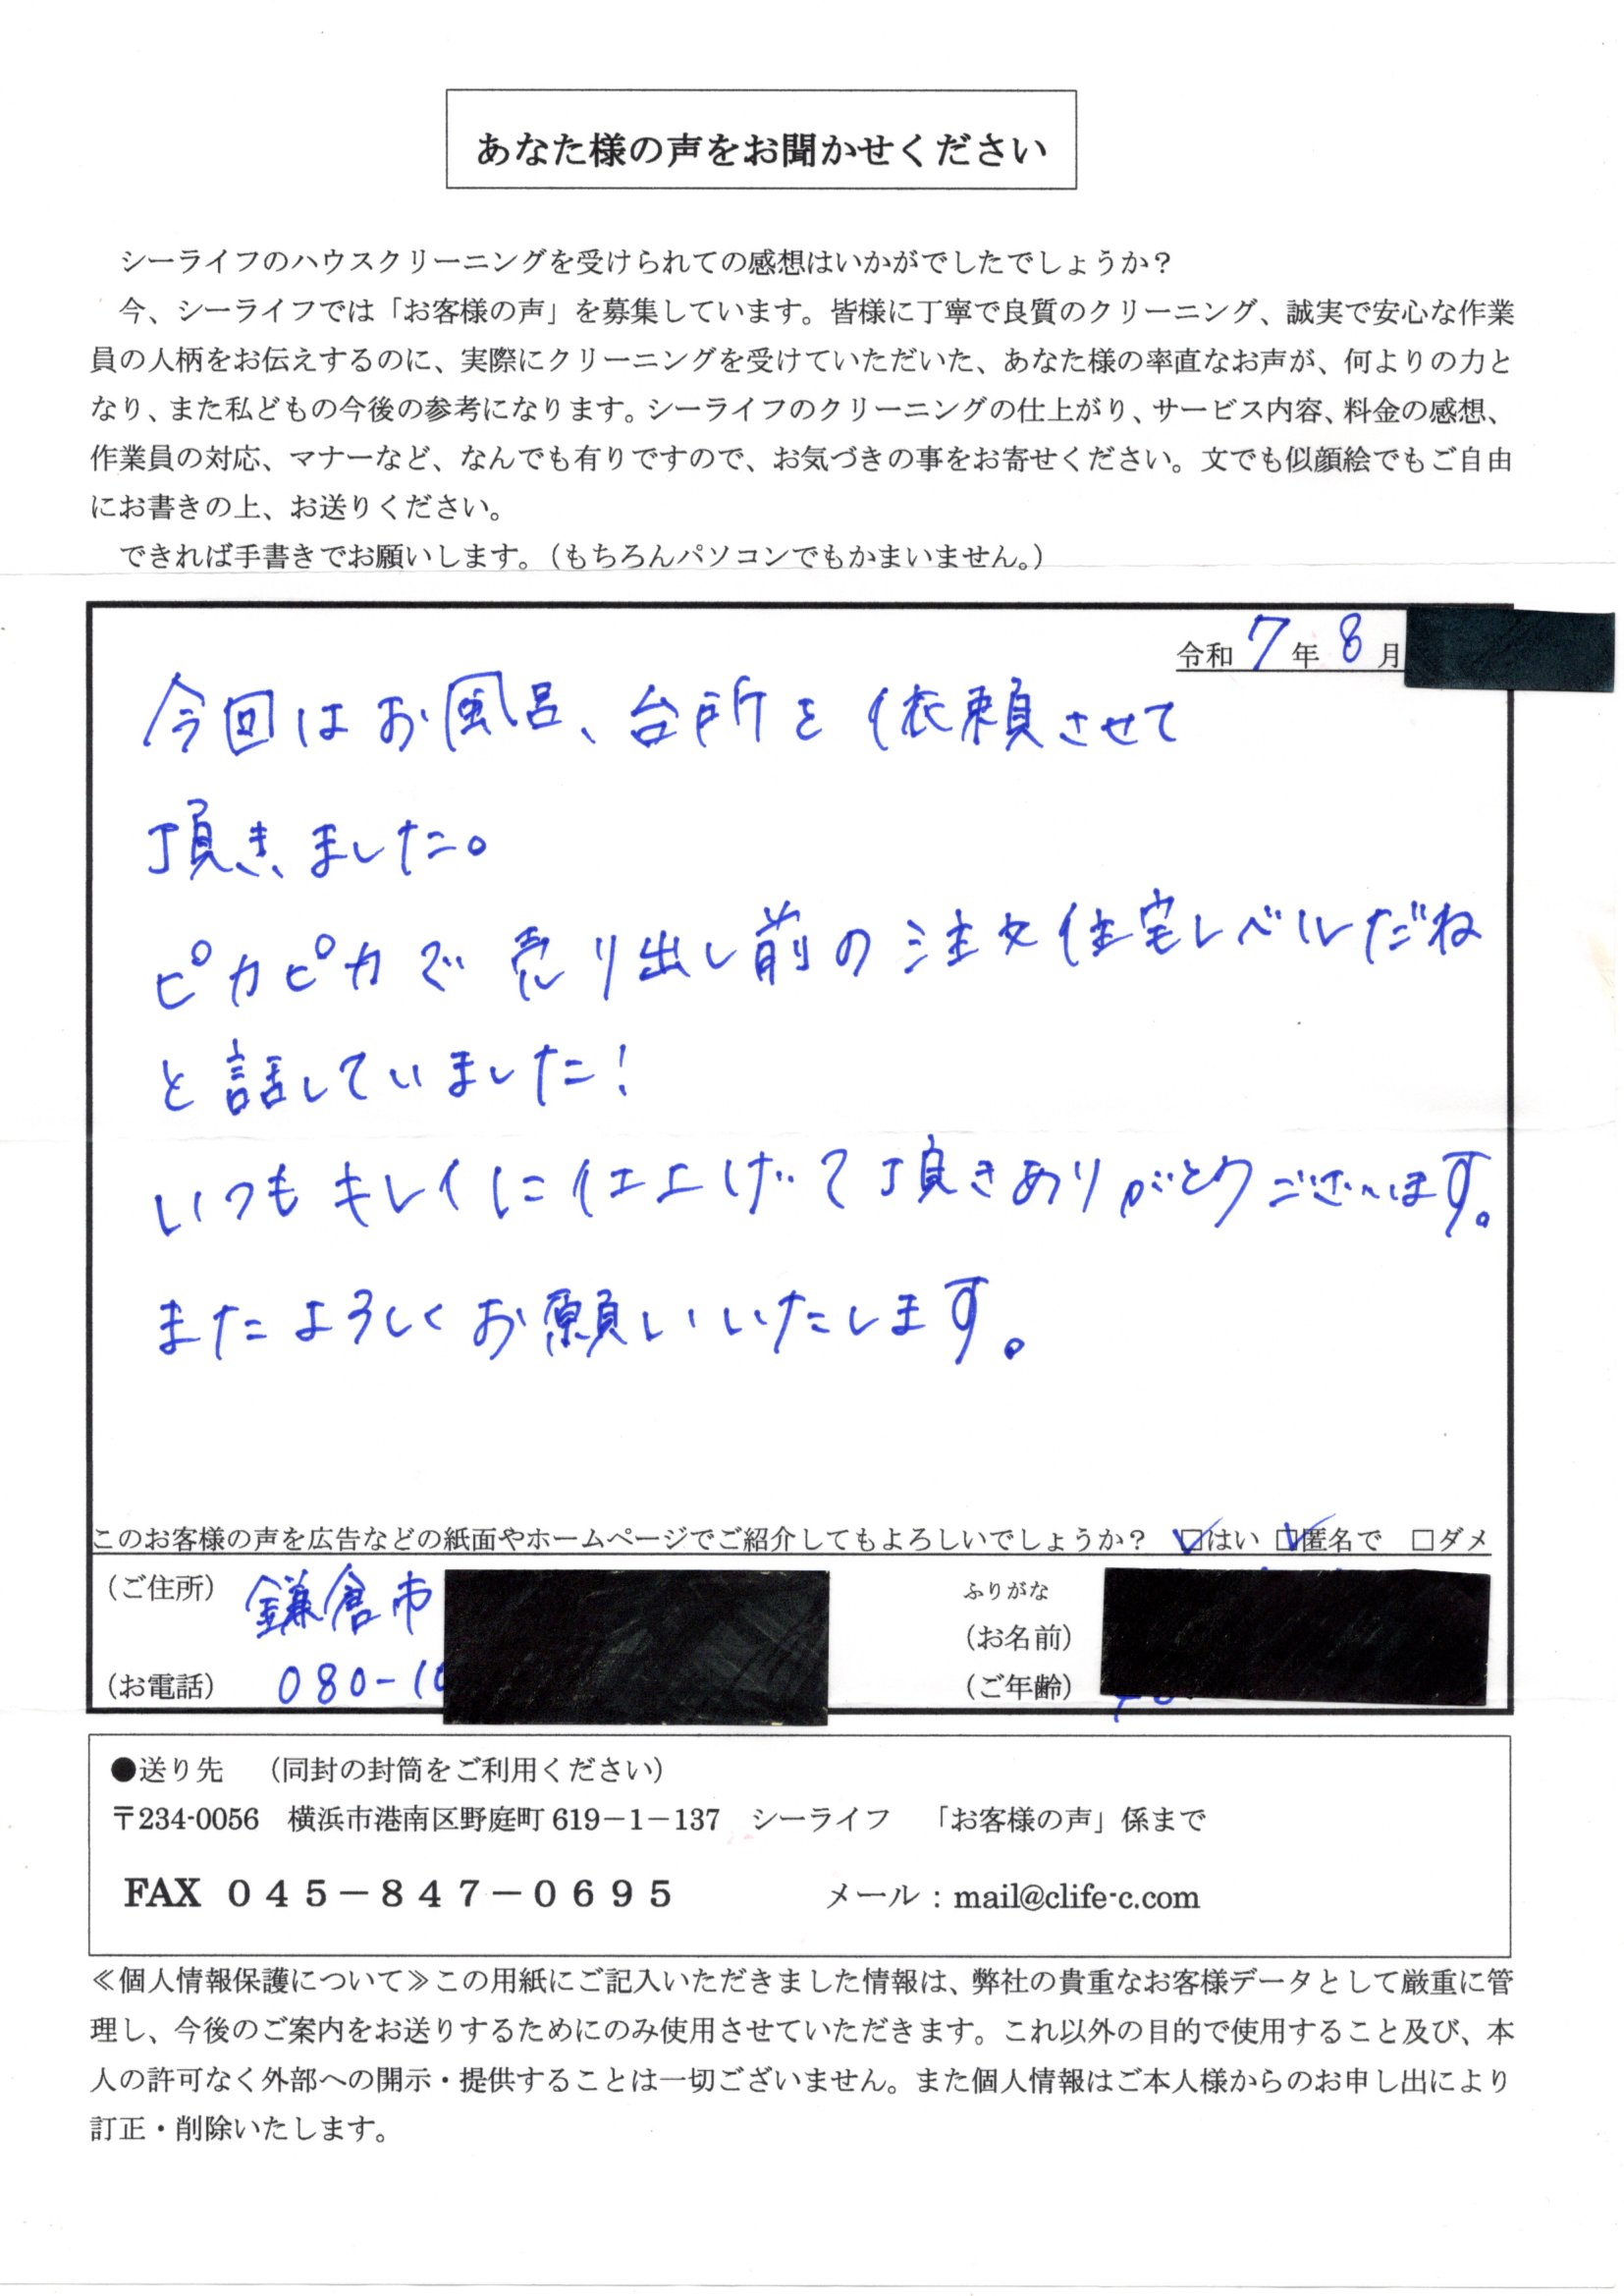 あなた様の声をお聞かせください
シーライフのハウスクリーニングを受けられての感想はいかがでしたでしょうか？
今、シーライフでは「お客様の声」を募集しています。皆様に丁寧で良質のクリーニング、誠実で安心な作業
員の人柄をお伝えするのに、実際にクリーニングを受けていただいた、あなた様の率直なお声が、何よりの力と
なり、また私どもの今後の参考になります。シーライフのクリーニングの仕上がり、サービス内容、料金の感想、
作業員の対応、マナーなど、なんでも有りですので、お気づきの事をお寄せください。文でも似顔絵でもご自由
にお書きの上、お送りください。
できれば手書きでお願いします。（もちろんパソコンでもかまいません。）
令和7年8月
今回はお風呂、台所を依頼させて
頂きました。
ピカピカで売り出し前の注文住宅レベルだね
と話していました！
いつもキレイに仕上げて頂きありがとうございます。
またよろしくお願いいたします。
このお客様の声を広告などの紙面やホームページでご紹介してもよろしいでしょうか？ ☑はい ☑匿名で □ダメ
（ご住所） 鎌倉市
ふりがな
（お名前）
（お電話） 080-10
（ご年齢）
●送り先 （同封の封筒をご利用ください）
〒234-0056 横浜市港南区野庭町619－1－137 シーライフ 「お客様の声」係まで
FAX ０４５－８４７－０６９５ メール：mail@clife-c.com
≪個人情報保護について≫この用紙にご記入いただきました情報は、弊社の貴重なお客様データとして厳重に管
理し、今後のご案内をお送りするためにのみ使用させていただきます。これ以外の目的で使用すること及び、本
人の許可なく外部への開示・提供することは一切ございません。また個人情報はご本人様からのお申し出により
訂正・削除いたします。